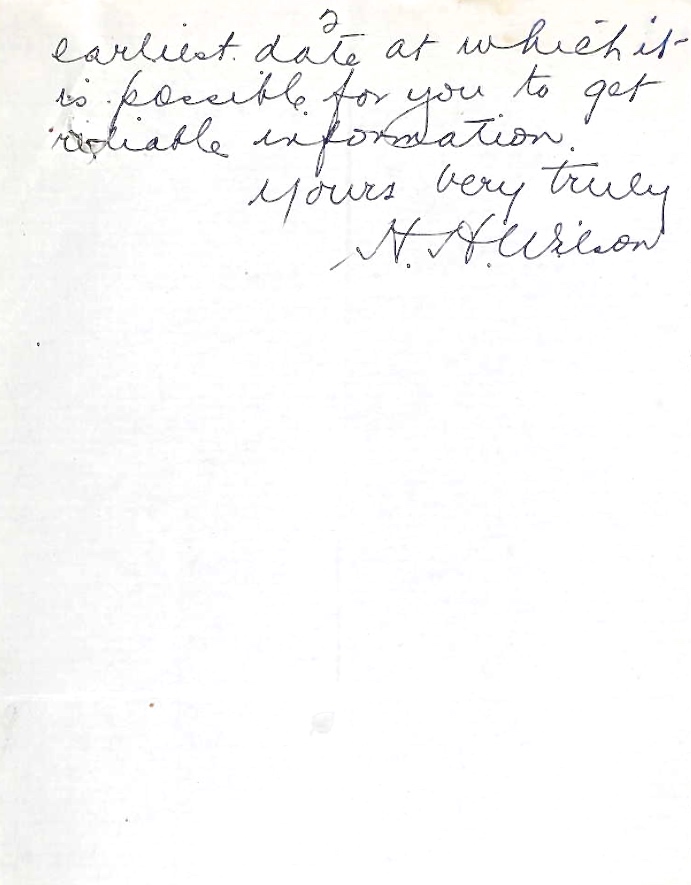 2
earliest date at which it
is possible for you to get
reliable information.
Yours very truly
H. H. Wilson